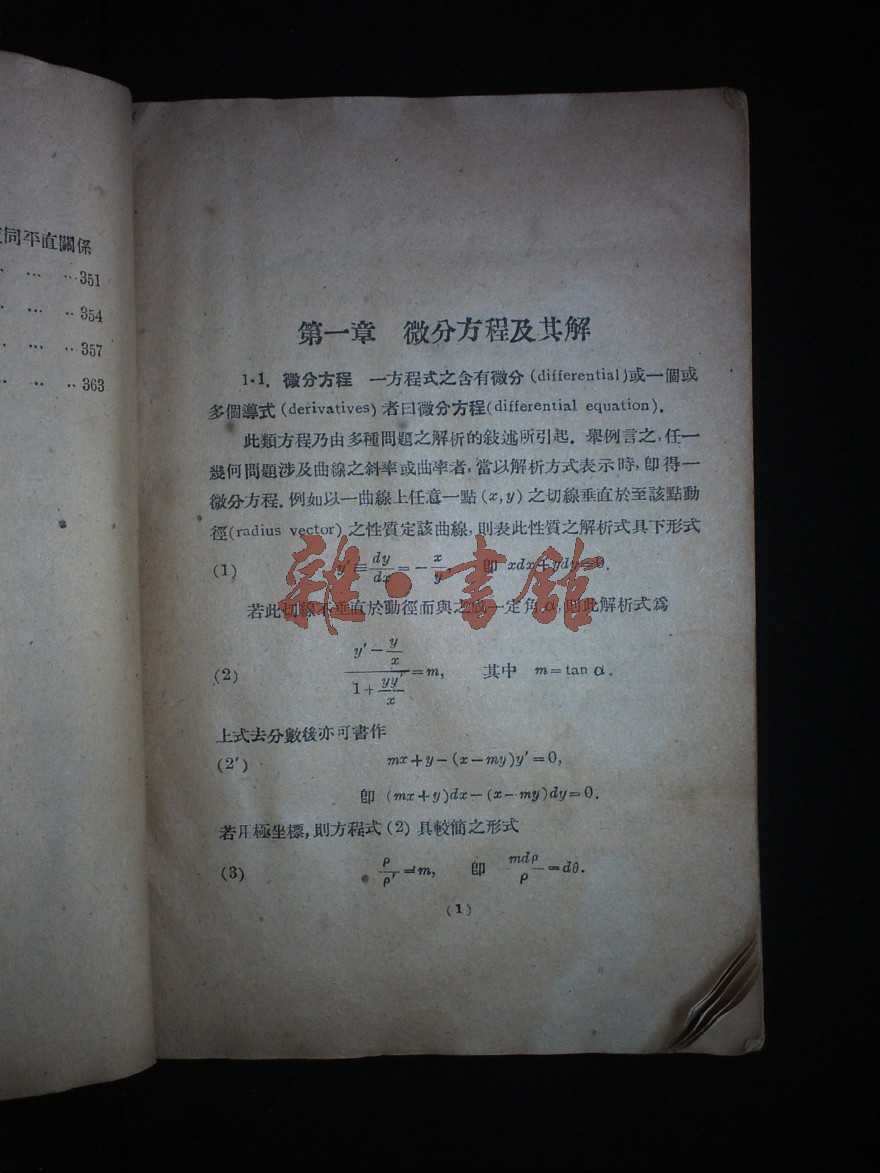 同平直關係
… …351
… …354
… …357
… …363
第一章 微分方程及其解
1·1. 微分方程 一方程式之含有微分 (differential)或一個或
多個導式 (derivatives) 者曰微分方程(differential equation).
此類方程乃由多種問題之解析的敍述所引起. 舉例言之,任一
幾何問題涉及曲線之斜率或曲率者,當以解析方式表示時,卽得一
微分方程. 例如以一曲線上任意一點 (x, y) 之切線垂直於至該點動
徑(radius vector) 之性質定該曲線,則表此性質之解析式具下形式
(1) y′ ≡ dy/dx = − x/y, 卽 xdx+ydy=0.
若此切線不垂直於動徑而與之成一定角 α, 則此解析式爲
(2) (y′ − y/x)/(1 + yy′/x) = m, 其中 m=tan α.
上式去分數後亦可書作
(2′) mx+y−(x−my)y′=0,
卽 (mx+y)dx−(x−my)dy=0.
若用極坐標,則方程式 (2) 具較簡之形式
(3) ρ/ρ′ = m, 卽 mdρ/ρ = dθ.
(1)
雜·書館